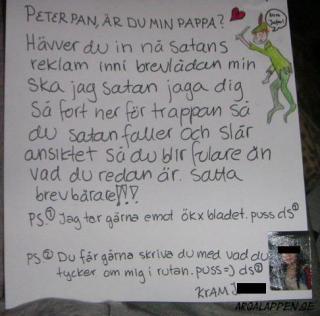 PETER PAN, ÄR DU MIN PAPPA?
Hävver du in nå satans
reklam inni brevlådan min
ska jag satan jaga dig
så fort ner för trappan så
du satan faller och slår
ansiktet så du blir fulare än
vad du redan är. satta
brevbärare!!!
PS.① Jag tar gärna emot ökx bladet. puss ds①
PS ② Du får gärna skriva du med vad du
tycker om mig i rutan. puss =) ds②
KRAM J
ARGALAPPEN.SE